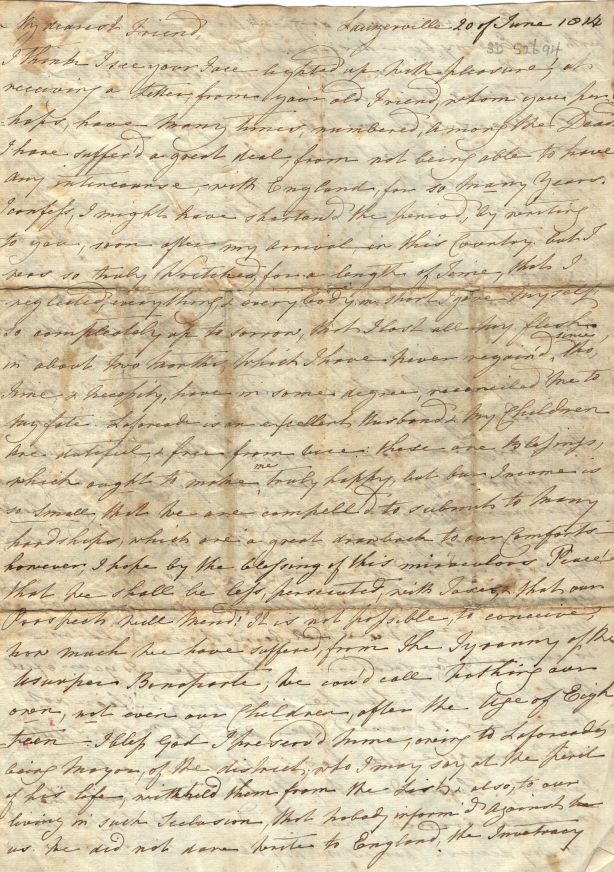 My dearest Friend, Launerville 20 of June 1814
SD 576 94
I think I see your Face lighted up with pleasure, at
receiving a letter, from your old Friend, whom you per-
haps, have many times, numbered among the Dead
I have suffer'd a great deal, from not being able to have
any intercourse, with England, for so many Years.
I confess, I might have shortend the period, by writing
to you, soon after my arrival in this Country but I
was so truly Wretched, for a length of Time, that I
neglected every thing, & every body, in short I gave myself
so completely up to sorrow, that I lost all my flesh
in about two Months, which I have never regain'd, since, tho,
Time & necessity, have in some degree, reconciled me to
my fate. Laforcade is an excellent Husband & My Children
are dutiful, & free from vice: these are blessings,
which ought to make me truly happy, but our Income is
so small that we are compell'd to submit to Many
hardships, which are a great drawback to our Comforts
however, I hope by the blessing of this miraculous Peace!
that we shall be less, persecuted, with Taxes, & that our
Prospects will mend! It is not possible, to conceive
how much we have suffered, from the Tyranny of the
Usurper Bonaparte; we could call nothing our
own, not even our Children, after the Age of Eigh
teen I bless God I preserv'd mine, owing to Laforcade
being Mayor, of the district, who I may say at the peril
of his life, withheld them from the List, & also, to our
living in such Seclusion, that nobody inform'd against
us. We did not dare write to England, the Invetracy